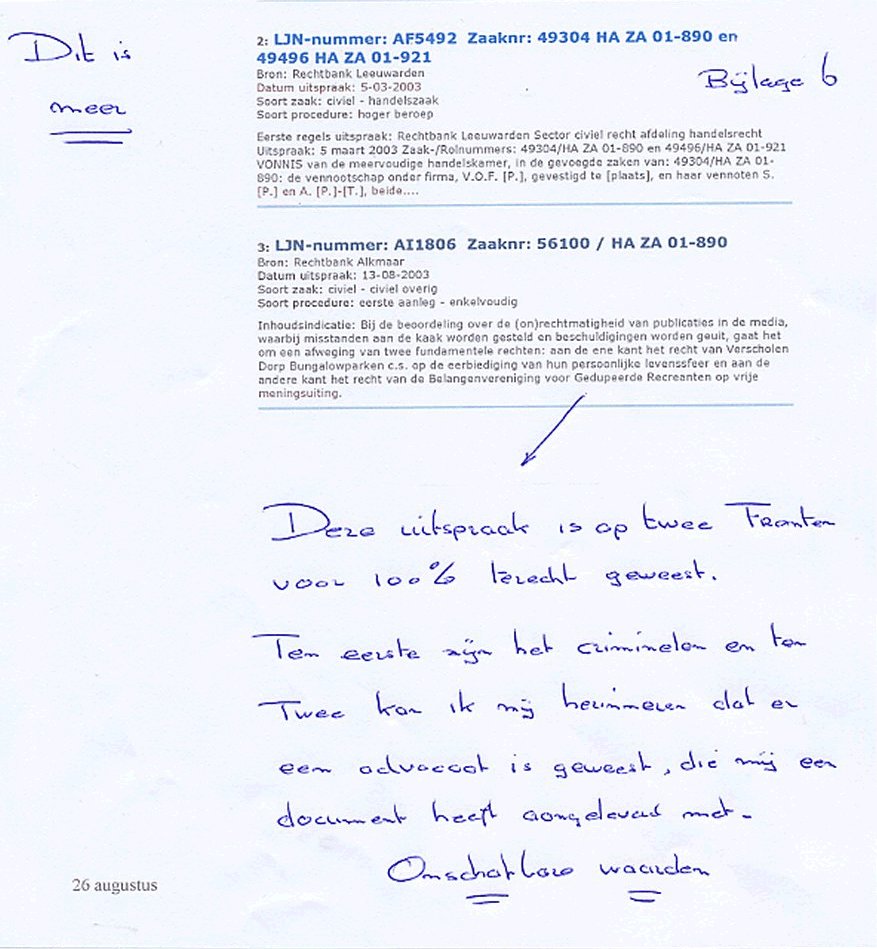 Dit is
meer
2: LJN-nummer: AF5492 Zaaknr: 49304 HA ZA 01-890 en
49496 HA ZA 01-921
Bron: Rechtbank Leeuwarden
Datum uitspraak: 5-03-2003
Soort zaak: civiel - handelszaak
Soort procedure: hoger beroep
Bijlage 6
Eerste regels uitspraak: Rechtbank Leeuwarden Sector civiel recht afdeling handelsrecht
Uitspraak: 5 maart 2003 Zaak-/Rolnummers: 49304/HA ZA 01-890 en 49496/HA ZA 01-921
VONNIS van de meervoudige handelskamer, in de gevoegde zaken van: 49304/HA ZA 01-
890: de vennootschap onder firma, V.O.F. [P.], gevestigd te [plaats], en haar vennoten S.
[P.] en A. [P.]-[T.], beide....
3: LJN-nummer: AI1806 Zaaknr: 56100 / HA ZA 01-890
Bron: Rechtbank Alkmaar
Datum uitspraak: 13-08-2003
Soort zaak: civiel - civiel overig
Soort procedure: eerste aanleg - enkelvoudig
Inhoudsindicatie: Bij de beoordeling over de (on)rechtmatigheid van publicaties in de media,
waarbij misstanden aan de kaak worden gesteld en beschuldigingen worden geuit, gaat het
om een afweging van twee fundamentele rechten: aan de ene kant het recht van Verscholen
Dorp Bungalowparken c.s. op de eerbiediging van hun persoonlijke levenssfeer en aan de
andere kant het recht van de Belangenvereniging voor Gedupeerde Recreanten op vrije
meningsuiting.
Deze uitspraak is op twee Fronten
voor 100% terecht geweest.
Ten eerste zijn het criminelen en ten
Twee kan ik mij herinneren dat er
een advocaat is geweest, die mij een
document heeft aangeleverd met.
Onschatbare waarden
26 augustus